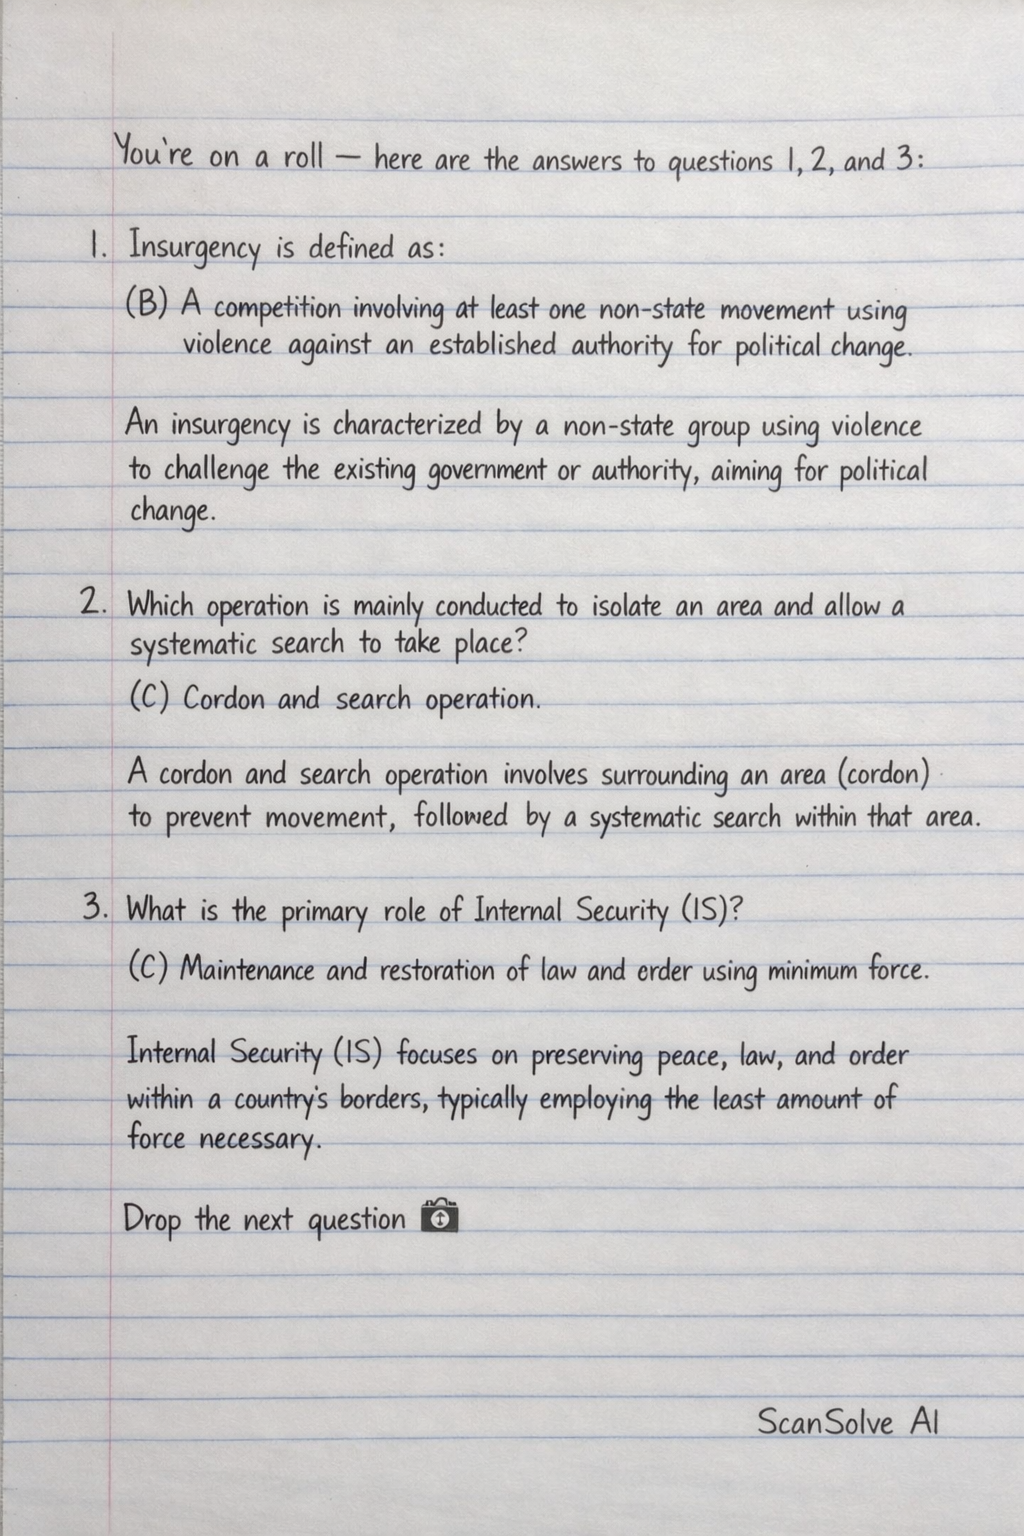 You're on a roll — here are the answers to questions 1, 2, and 3:
1. Insurgency is defined as:
(B) A competition involving at least one non-state movement using
violence against an established authority for political change.
An insurgency is characterized by a non-state group using violence
to challenge the existing government or authority, aiming for political
change.
2. Which operation is mainly conducted to isolate an area and allow a
systematic search to take place?
(C) Cordon and search operation.
A cordon and search operation involves surrounding an area (cordon)
to prevent movement, followed by a systematic search within that area.
3. What is the primary role of Internal Security (IS)?
(C) Maintenance and restoration of law and order using minimum force.
Internal Security (IS) focuses on preserving peace, law, and order
within a country's borders, typically employing the least amount of
force necessary.
Drop the next question 📷
ScanSolve AI